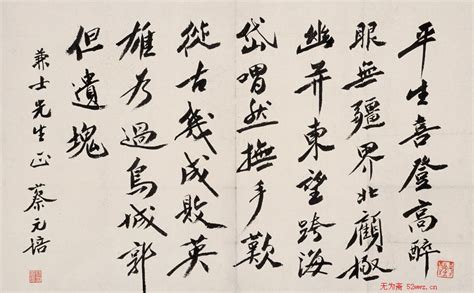 平生喜登高醉
眼無疆界北顧極
幽并東望跨海
岱喟然撫手歎
從古幾成敗英
雄為過鳥城郭
但遺塊
兼士先生正
蔡元培
无为斋 52wwz.cn